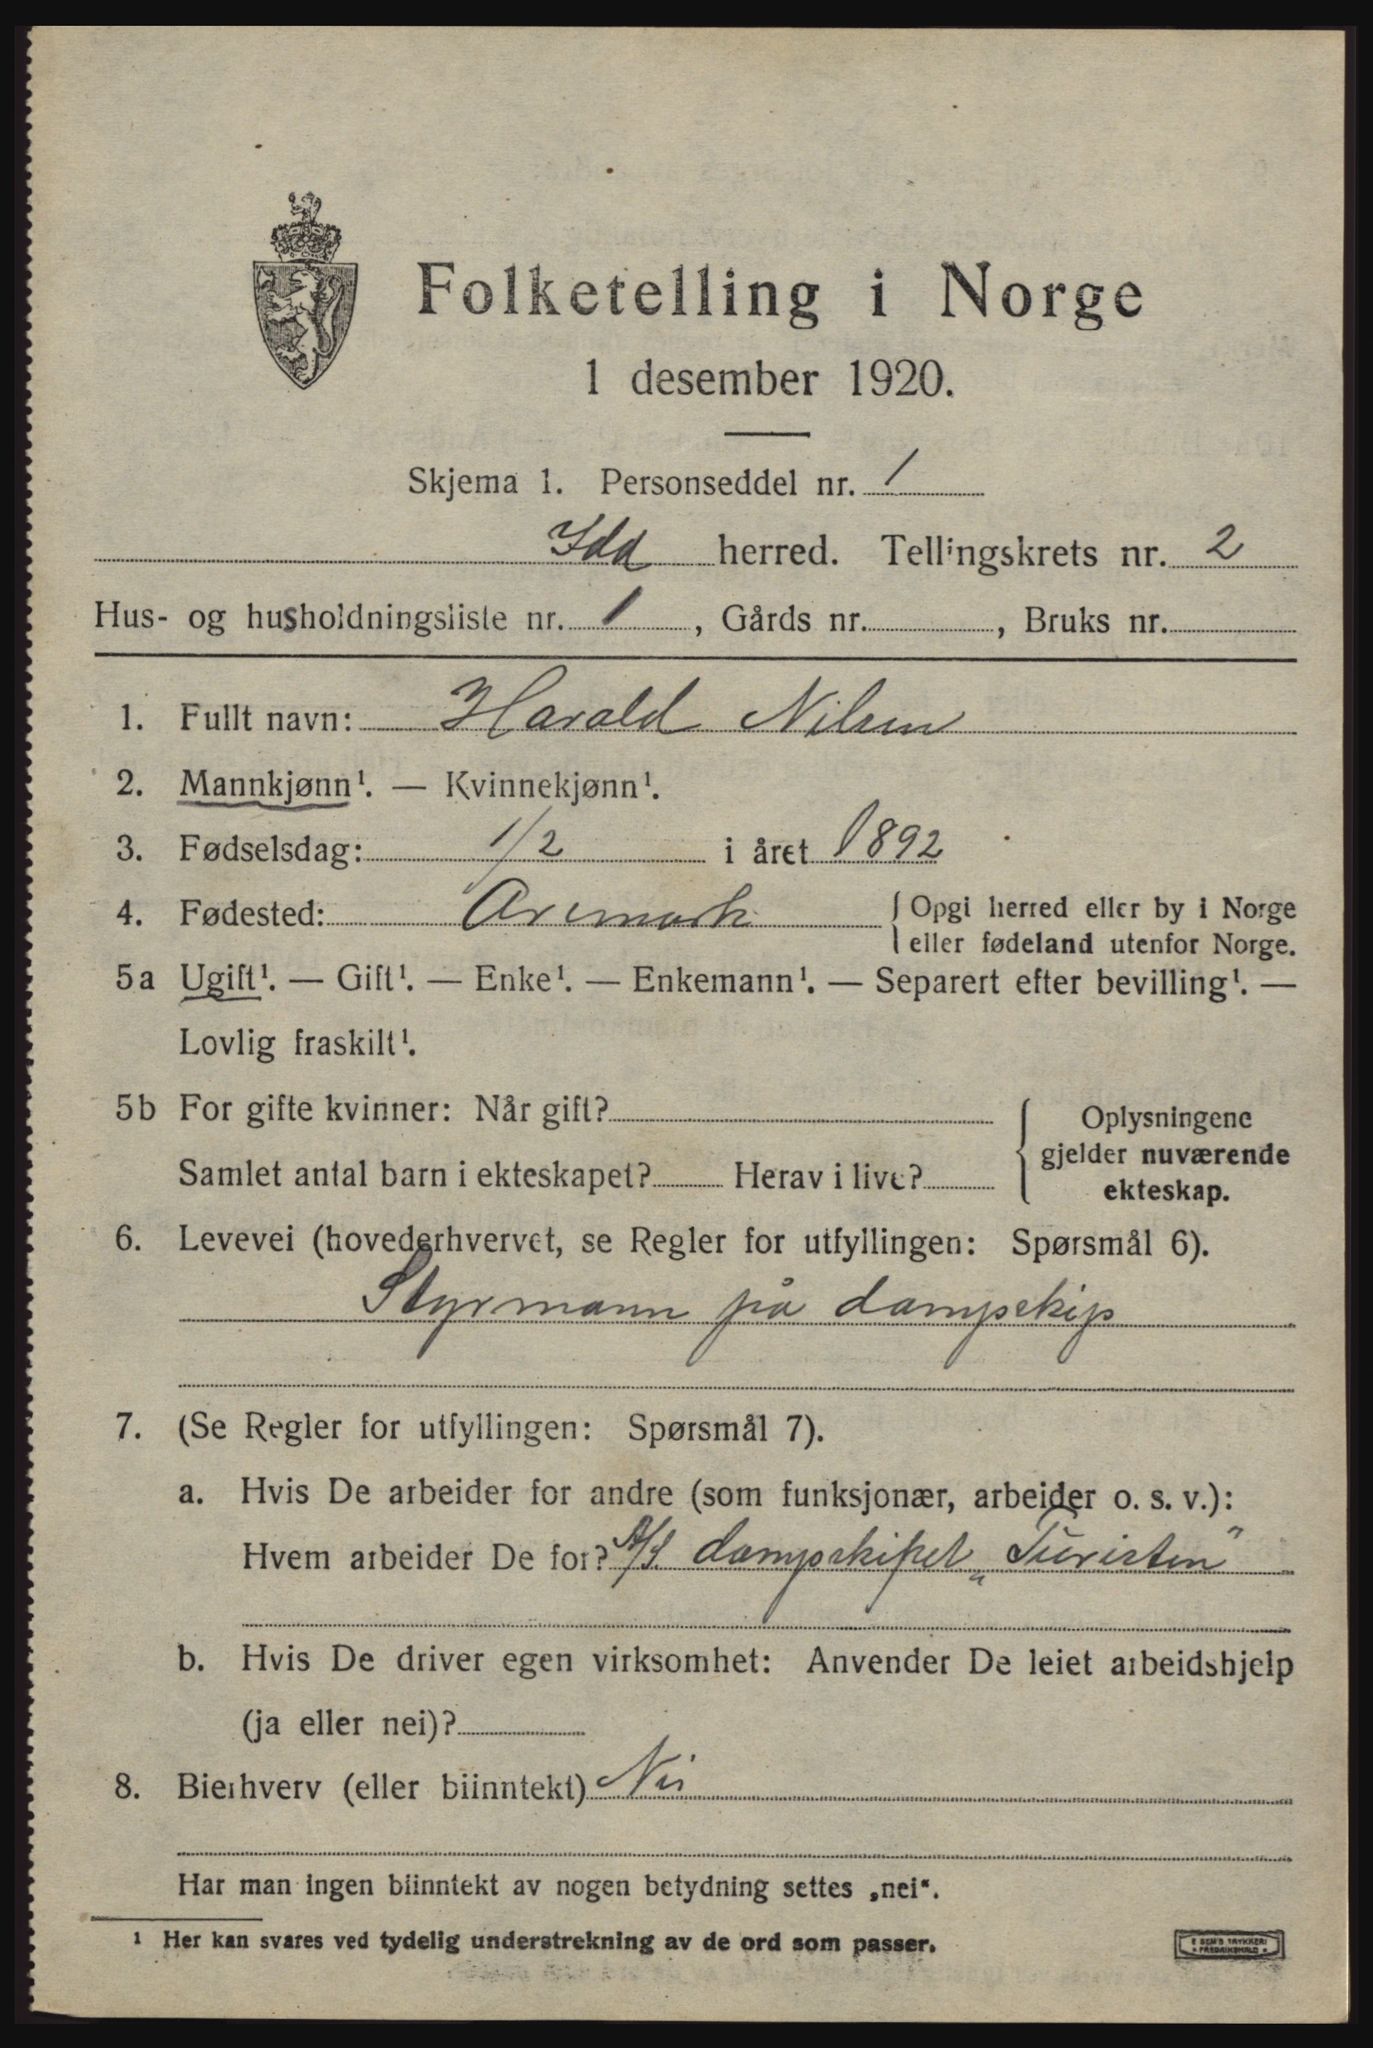 Folketelling i Norge
1 desember 1920.
Skjema 1. Personseddel nr. 1
Idd herred. Tellingskrets nr. 2
Hus- og husholdningsliste nr. 1, Gårds nr. , Bruks nr.
1. Fullt navn: Harald Nilsen
2. Mannkjønn¹. — Kvinnekjønn¹.
3. Fødselsdag: 1/2 i året 1892
4. Fødested: Aremark { Opgi herred eller by i Norge
eller fødeland utenfor Norge.
5a Ugift¹. — Gift¹. — Enke¹. — Enkemann¹. — Separert efter bevilling¹. —
Lovlig fraskilt¹.
5b For gifte kvinner: Når gift? { Oplysningene
gjelder nuværende
Samlet antal barn i ekteskapet? Herav i live?
ekteskap.
6. Levevei (hovederhvervet, se Regler for utfyllingen: Spørsmål 6).
Styrmann på dampskip
7. (Se Regler for utfyllingen: Spørsmål 7).
a. Hvis De arbeider for andre (som funksjonær, arbeider o. s. v.):
Hvem arbeider De for? A/S dampskipet „Turisten"
b. Hvis De driver egen virksomhet: Anvender De leiet arbeidshjelp
(ja eller nei)?
8. Bierhverv (eller biinntekt) Nei
Har man ingen biinntekt av nogen betydning settes „nei“.
¹ Her kan svares ved tydelig understrekning av de ord som passer.
E SEM'S TRYKKERI
FREDRIKSHALD